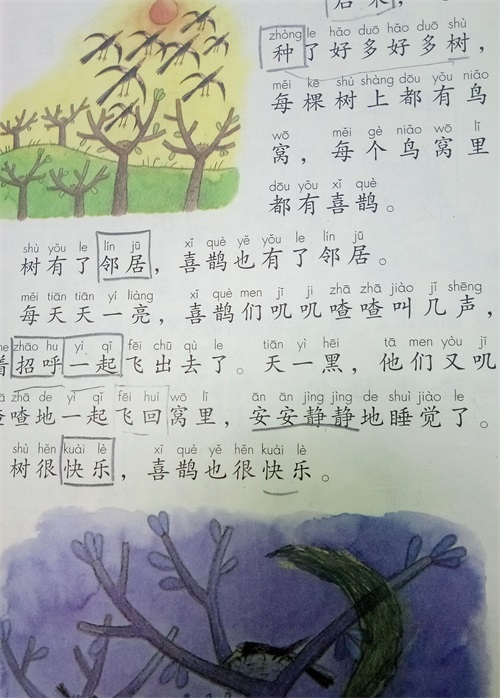 zhòng le hǎo duō hǎo duō shù
种了好多好多树，
měi kē shù shàng dōu yǒu niǎo
每棵树上都有鸟
wō měi gè niǎo wō lǐ
窝，每个鸟窝里
dōu yǒu xǐ què
都有喜鹊。
shù yǒu le lín jū xǐ què yě yǒu le lín jū
树有了邻居，喜鹊也有了邻居。
měi tiān tiān yí liàng xǐ què men jī ji zhā zhā jiào jǐ shēng
每天天一亮，喜鹊们叽叽喳喳叫几声，
zhāo hu yì qǐ fēi chū qù le tiān yì hēi tā men yòu jī
着招呼一起飞出去了。天一黑，他们又叽
zhā de yì qǐ fēi huí wō lǐ ān ān jìng jìng de shuì jiào le
喳喳地一起飞回窝里，安安静静地睡觉了。
shù hěn kuài lè xǐ què yě hěn kuài lè
树很快乐，喜鹊也很快乐。